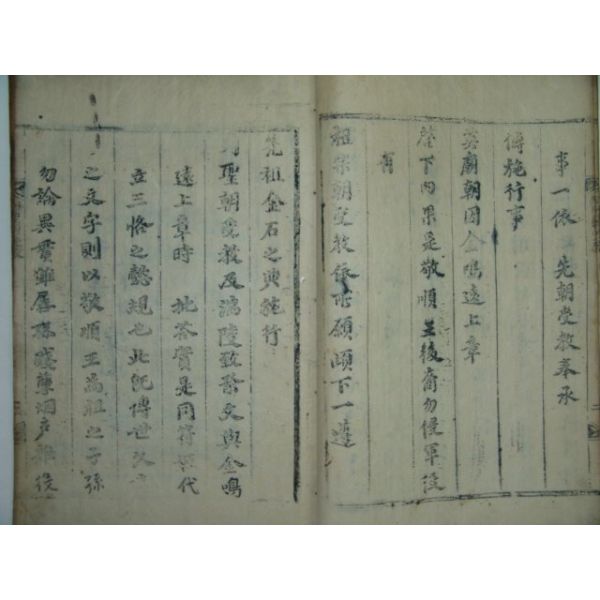 事一依 先朝受教奉承
傳施行事
英廟朝因金鳴遠上章
啓下內果是敬順王後裔勿侵軍役
祖宗朝受教依所願頉下一遵
先祖金石之典施行
聖朝受教及滿陵致祭文與金鳴
遠上章時 批答實是同符 代
立三恪之懿規也此旣傳世久
之文字則以敬順王爲祖之子孫
勿論異貫雖孱孫殘孽烟戶雜役